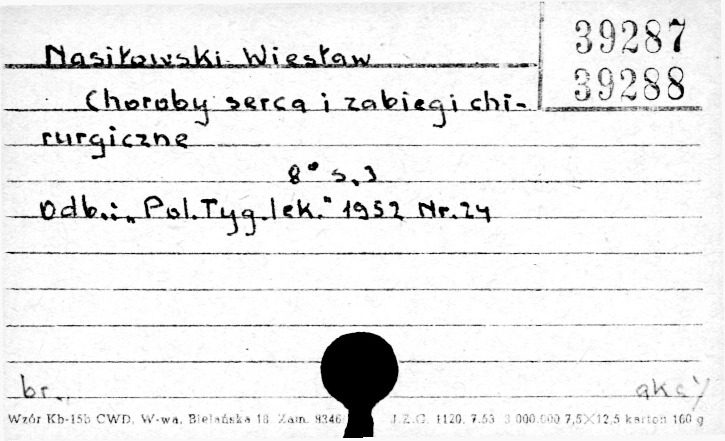 39287
Nasiłowski Wiesław
39288
Choroby serca i zabiegi chi-
rurgiczne
8° s, 3
Odb.: „Pol. Tyg. lek." 1952 Nr. 24
br.
Wzór Kb-15b CWD, W-wa, Bielańska 18 Zam. 9346 J.Z.G. 1120, 7.53 3 000.000 7,5×12,5 karton 160 g